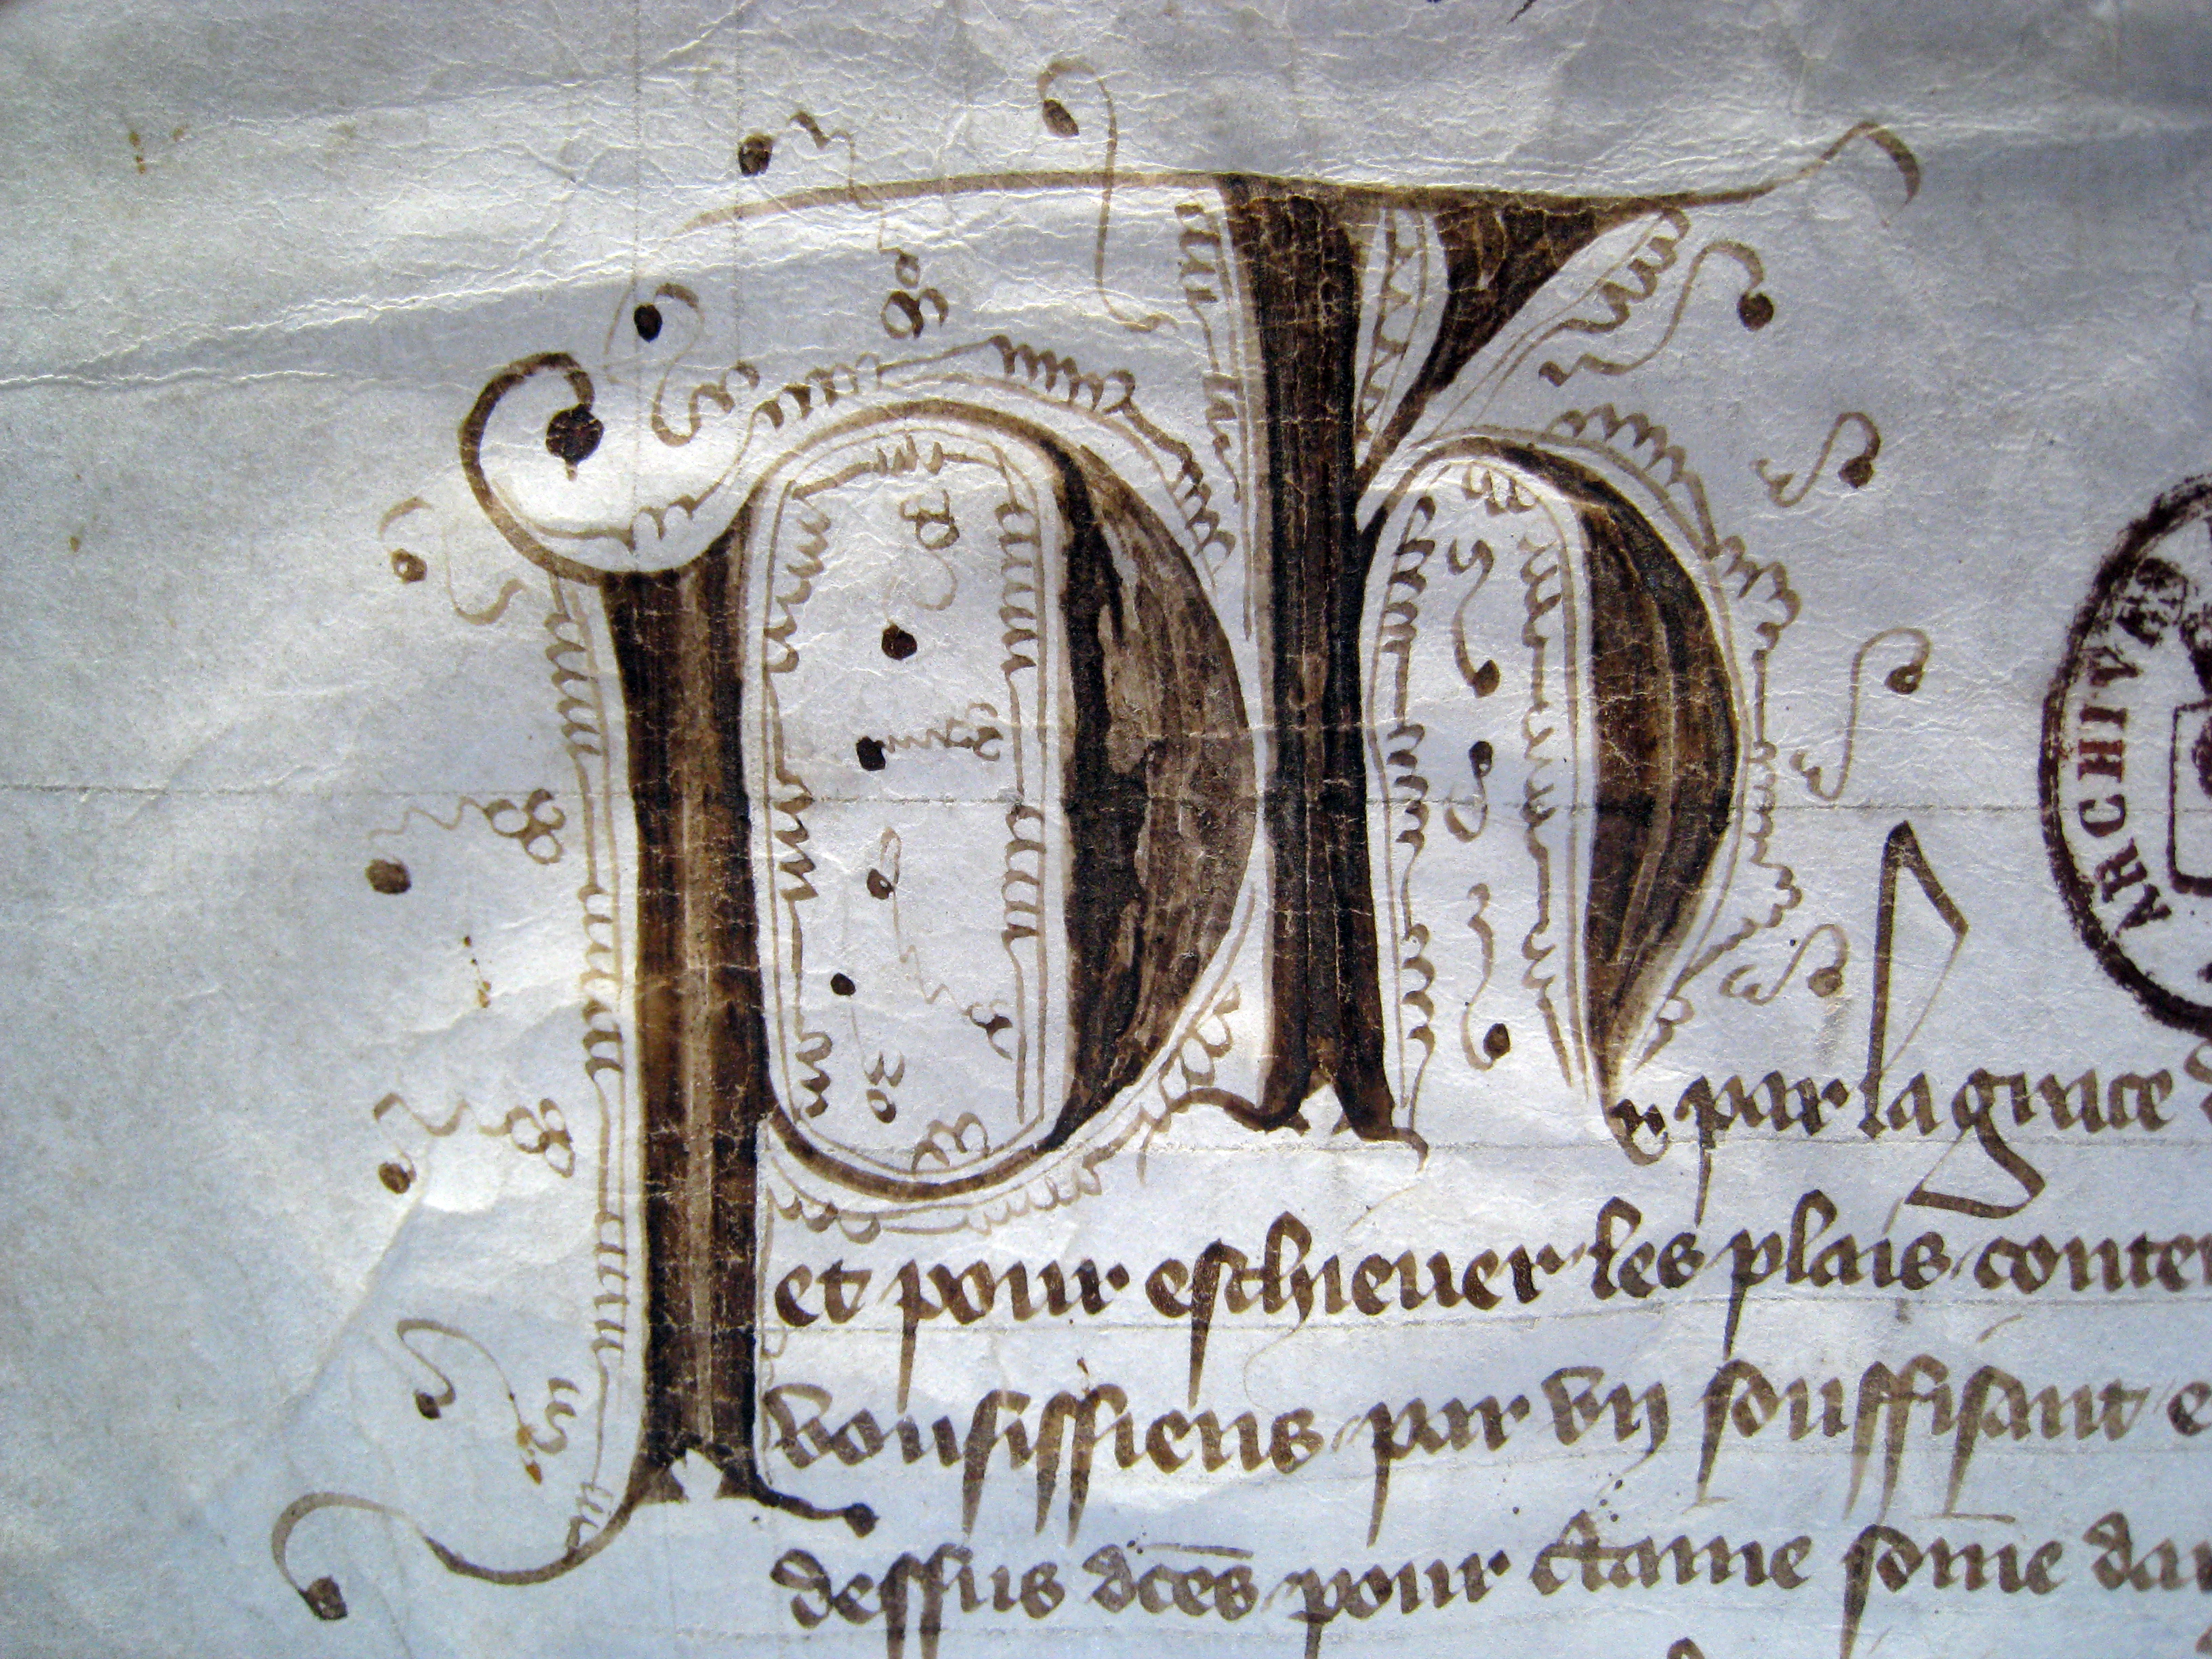 Ph par la grace
et pour eschieuer les plais conten
vousissiens par vn souffisant e
dessus dces pour ctaine some dar
ARCHIVES